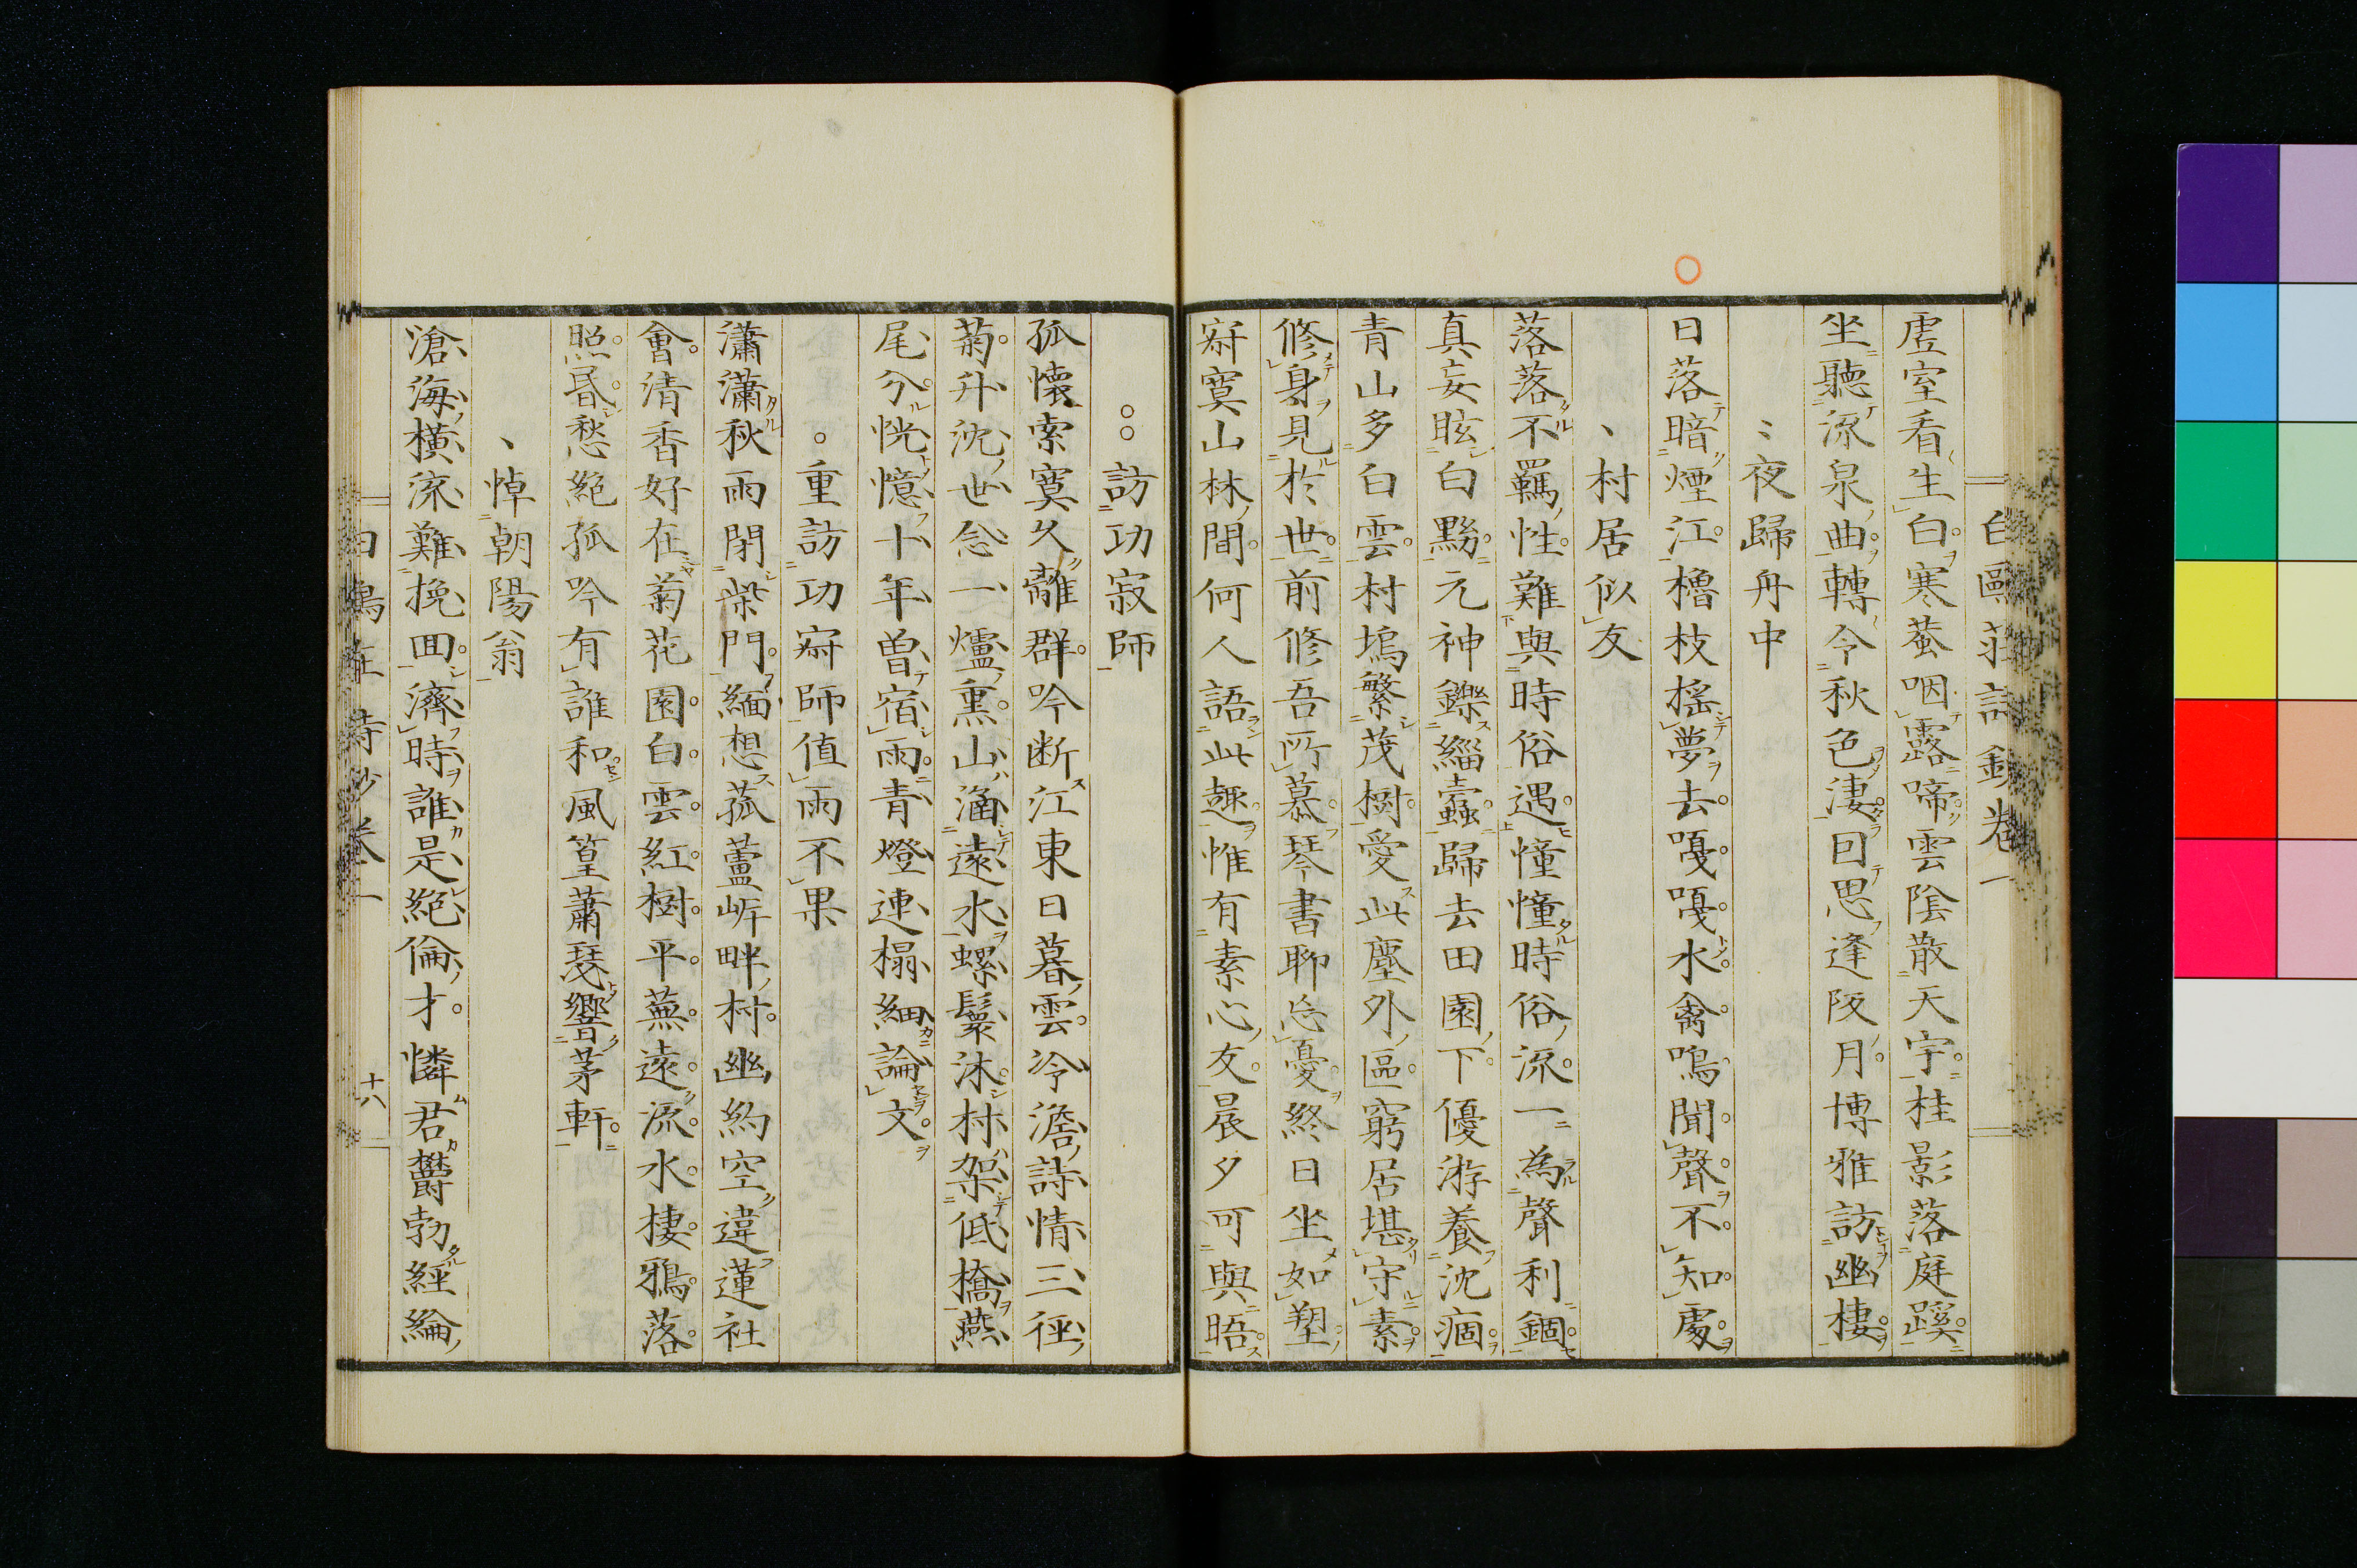 白鷗荘詩鈔卷一
虛室看生白寒蛩咽露啼雲陰散天宇桂影落庭蹊
坐聽流泉曲轉令秋色淒回思逢陂月博雅訪幽棲
夜歸舟中
日落暗煙江櫓枝搖夢去嘎嘎水禽鳴聞聲不知處
村居似友
落落不羈性難與時俗遇憧憧時俗流一為聲利錮
真妄眩白黟元神鑠緇蠹歸去田園下優游養沈痼
青山多白雲村塢繁茂樹愛此塵外區窮居堪守素
修身見於世前修吾所慕琴書聊忘憂終日坐如塑
寂寞山林間何人語此趣惟有素心友晨夕可與晤
訪功寂師
孤懷索寞久離群吟断江東日暮雲冷澹詩情三徑
菊升沈世念一爐熏山涵遠水螺鬟沐村架低橋燕
尾分恍憶十年曽宿雨青燈連榻細論文
重訪功寂師値雨不果
瀟瀟秋雨閉柴門緬想菰蘆岍畔村幽約空違蓮社
會清香好在菊花園白雲紅樹平蕪遠流水棲鴉落
照昏愁絕孤吟有誰和風篁蕭瑟響茅軒
悼朝陽翁
滄海橫流難挽回濟時誰是絕倫才憐君欝勃經綸
十八